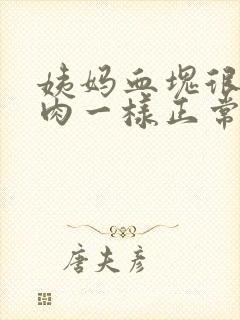 姨妈血块很
肉一样正常
唐夫彦